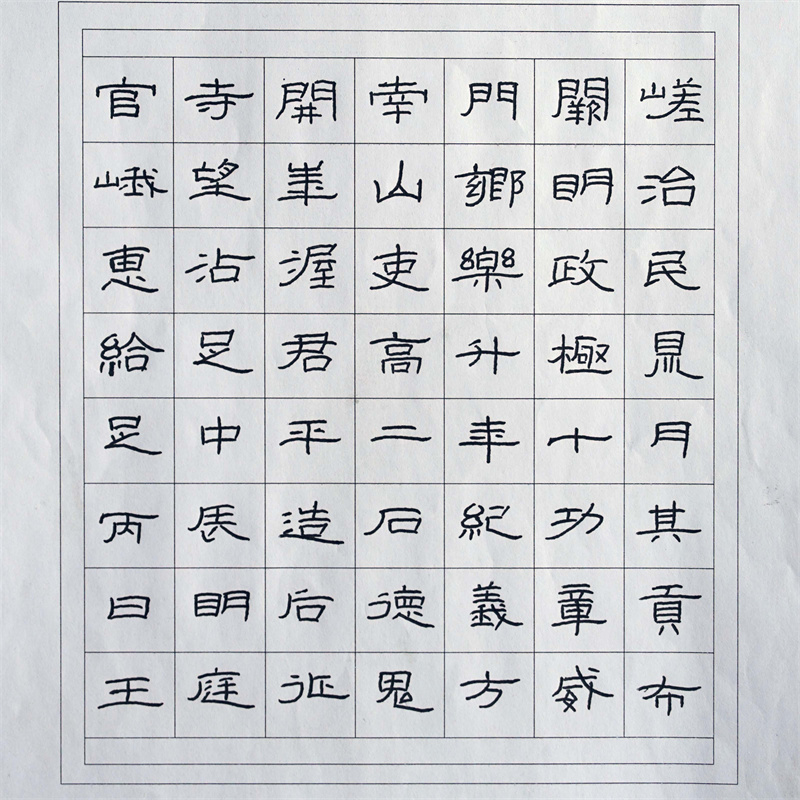 官寺開南門闕嵯
峨望華山鄉明治
惠沾渥吏樂政民
給足君高升極鼎
足中平二年十月
丙辰造石紀功其
曰明后德義章貢
王庭征鬼方威布